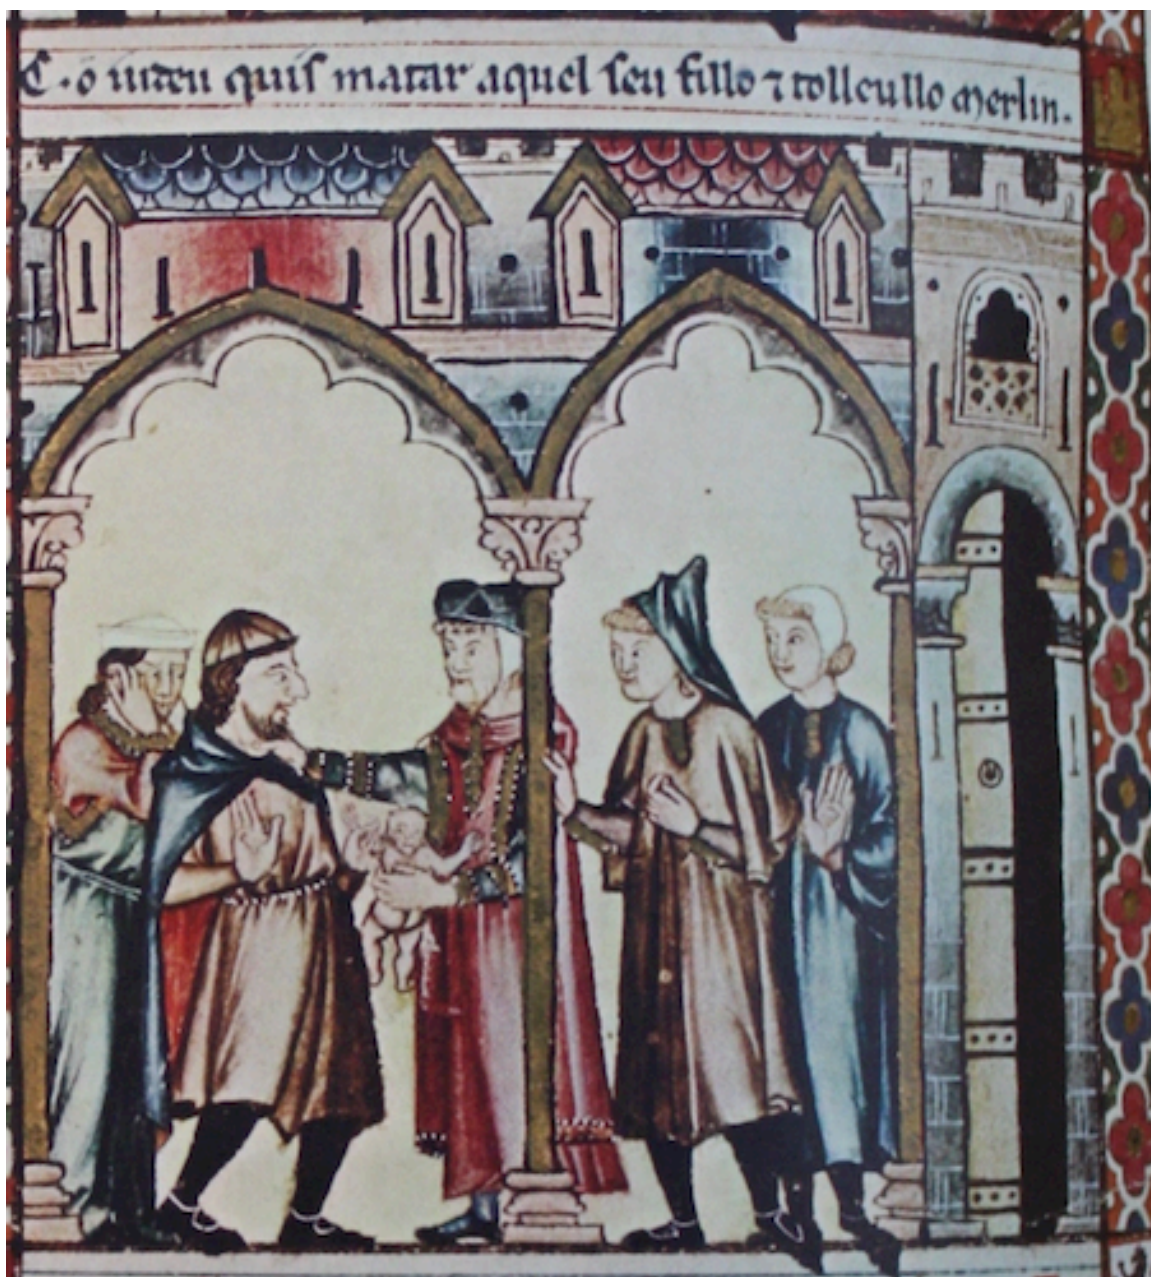 C · õ iudeu quis matar aquel seu fillo ⁊ tolleullo Merlin.